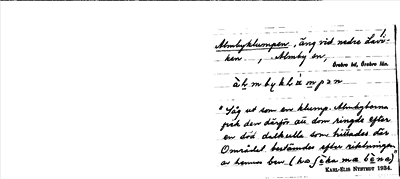 Almbyklumpen, äng vid nedre Lavi-
ken, Almby en,
Örebro hd, Örebro län.
"Såg ut som en klump. Almbyborna
fick den därför att dom ringde efter
en död dalkulla som hittades där
Området bestämdes efter riktningen
av hennes ben
KARL-ELIS NYSTEDT 1934.